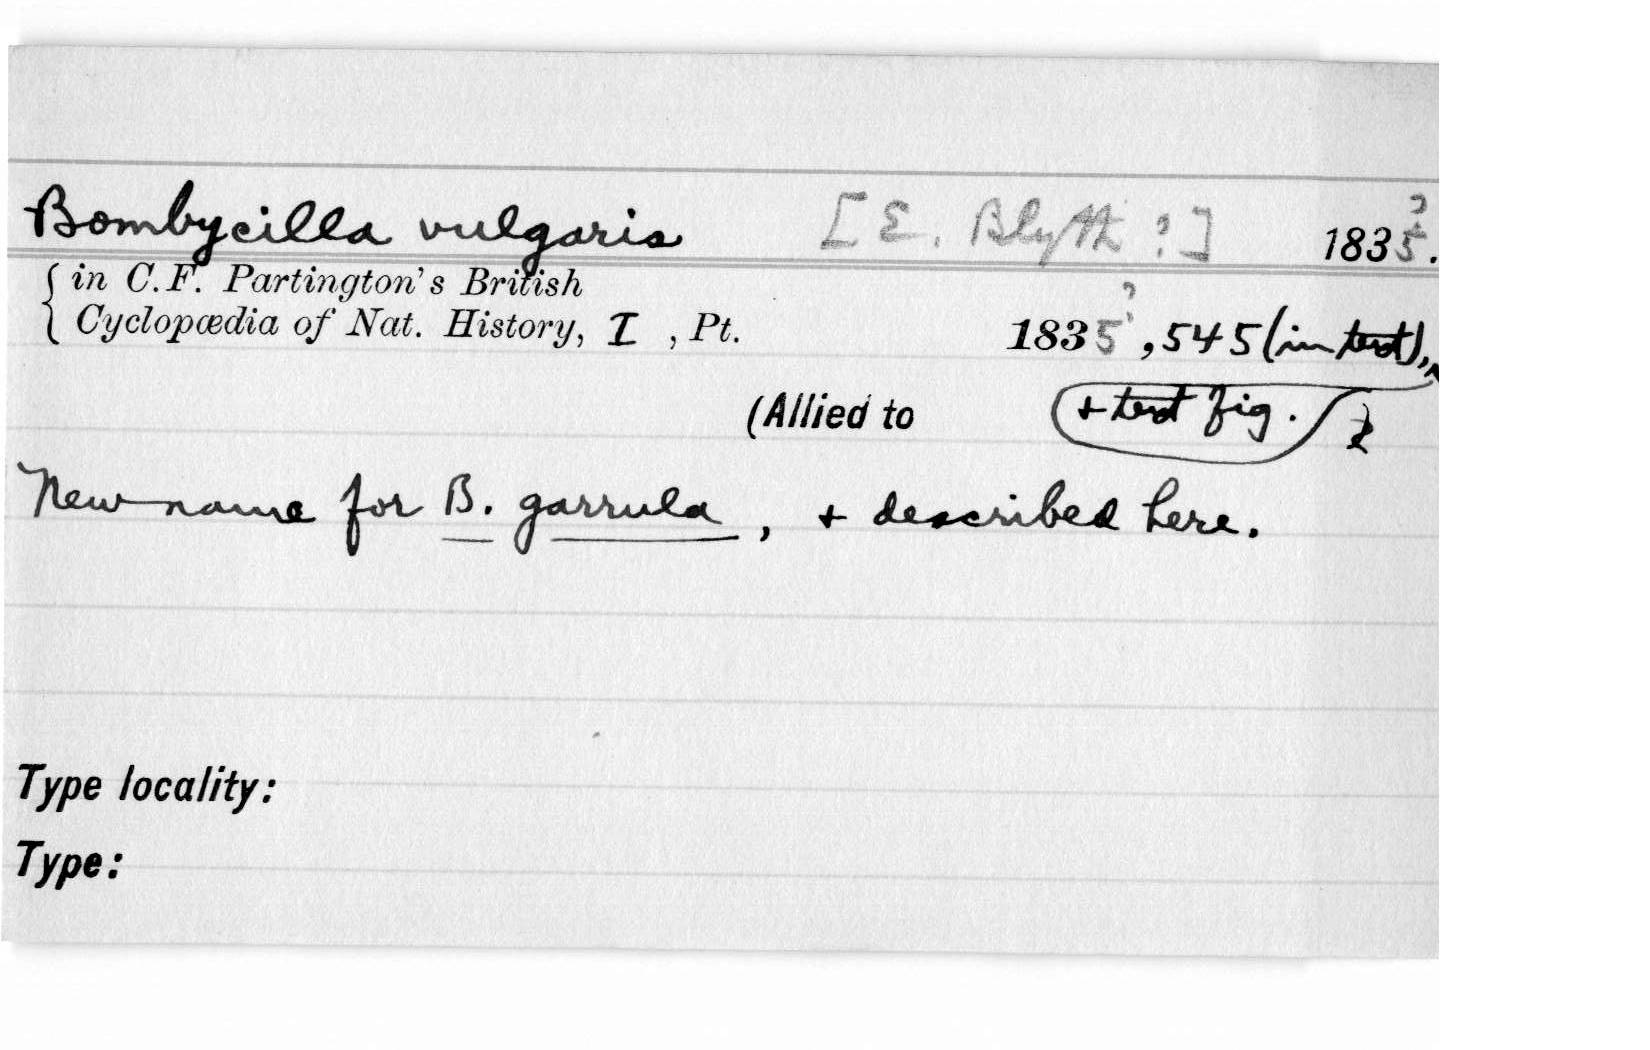 Bombycilla vulgaris [E. Blyth ?] 1835?.
in C.F. Partington's British
Cyclopædia of Nat. History, I , Pt. 1835?, 545 (in text),
(Allied to + text fig.
New name for B. garrula, + described here.
Type locality:
Type: